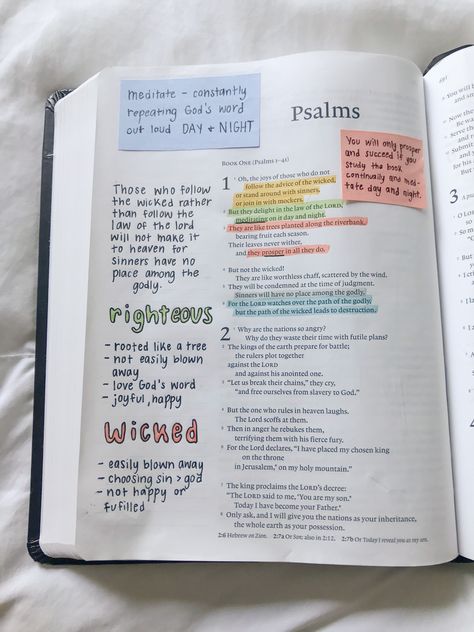 meditate - constantly
repeating God's word
out loud DAY & NIGHT
Psalms
BOOK ONE (Psalms 1–41)
You will only prosper
and succeed if you
study the book
continually and med-
tate day and night.
Those who follow
the wicked rather
than follow the
law of the lord
will not make it
to heaven for
sinners have no
place among the
godly.
righteous
- rooted like a tree
- not easily blown
away
- love God's word
- joyful, happy
wicked
- easily blown away
- choosing sin > god
- not happy or
fufilled
1 Oh, the joys of those who do not
follow the advice of the wicked,
or stand around with sinners,
or join in with mockers.
2 But they delight in the law of the LORD,
meditating on it day and night.
3 They are like trees planted along the riverbank,
bearing fruit each season.
Their leaves never wither,
and they prosper in all they do.
4 But not the wicked!
They are like worthless chaff, scattered by the wind.
5 They will be condemned at the time of judgment.
Sinners will have no place among the godly.
6 For the LORD watches over the path of the godly,
but the path of the wicked leads to destruction.
2 Why are the nations so angry?
Why do they waste their time with futile plans?
2 The kings of the earth prepare for battle;
the rulers plot together
against the LORD
and against his anointed one.
3 "Let us break their chains," they cry,
"and free ourselves from slavery to God."
4 But the one who rules in heaven laughs.
The Lord scoffs at them.
5 Then in anger he rebukes them,
terrifying them with his fierce fury.
6 For the Lord declares, "I have placed my chosen king
on the throne
in Jerusalem, on my holy mountain."
7 The king proclaims the LORD's decree:
"The LORD said to me, 'You are my son.
Today I have become your Father.
8 Only ask, and I will give you the nations as your inheritance,
the whole earth as your possession.
2:6 Hebrew on Zion. 2:7a Or Son; also in 2:12. 2:7b Or Today I reveal you as my son.
3